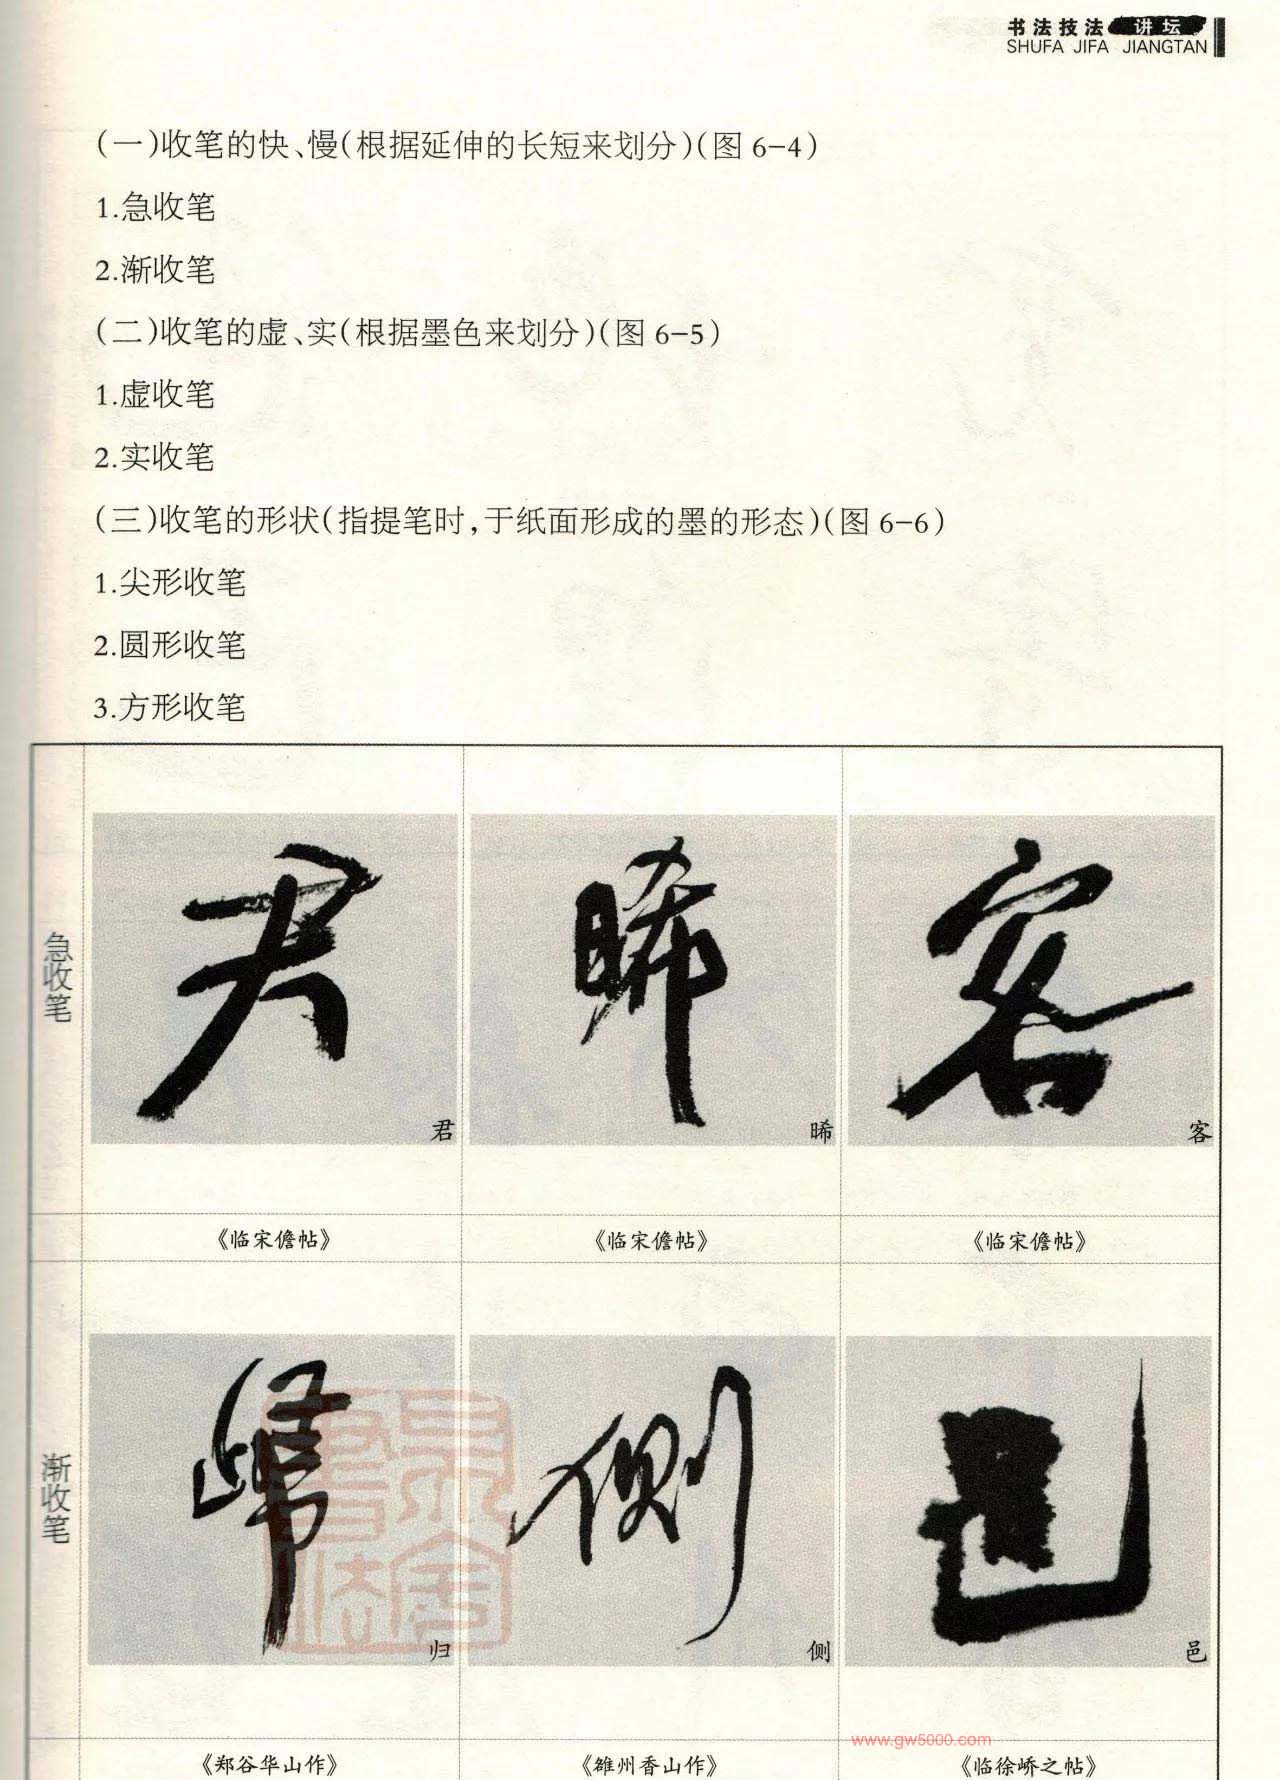 书法技法 讲坛
SHUFA JIFA JIANGTAN
(一)收笔的快、慢(根据延伸的长短来划分)(图 6-4)
1.急收笔
2.渐收笔
(二)收笔的虚、实(根据墨色来划分)(图 6-5)
1.虚收笔
2.实收笔
(三)收笔的形状(指提笔时,于纸面形成的墨的形态)(图 6-6)
1.尖形收笔
2.圆形收笔
3.方形收笔
急收笔
君
晞
客
《临宋儋帖》
《临宋儋帖》
《临宋儋帖》
渐收笔
归
侧
邑
www.gw5000.com
《郑谷华山作》
《雒州香山作》
《临徐峤之帖》